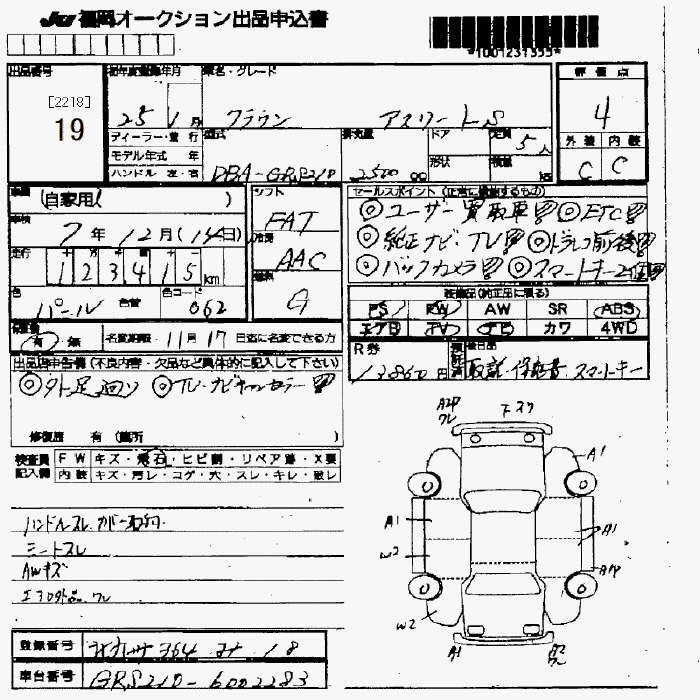 JU福岡オークション出品申込書
*1001231355*
出品番号 初年度登録年月 車名・グレード 評価点
[2218]
19
25 1月 クラウン アスリートS 4
ディーラー・並行 型式 排気量 ドア 定員 5人 外装 内装
モデル年式 年 形状 積量
ハンドル 左・右 DBA-GRS210 2500 CC kg C C
車歴 (自家用) シフト セールスポイント(正常に機能するもの)
FAT ◎ユーザー買取車!! ◎ETC!!
車検 7年12月(14日) 冷房 ◎純正ナビ・TV!! ◎ドラレコ前後!!
走行 123415km AAC ◎バックカメラ!! ◎スマートキー2個!!
燃料 G
色 パール 色替 色コード 062
装備品(純正品に限る)
PS PW AW SR ABS
エアB TV ナビ カワ 4WD
有 無 名変期限・11月17日迄に名変できる方
R券 12860円
後日品 取説・保証書・スマートキー
出品店申告欄(不良内容・欠品など具体的に記入して下さい)
◎外足廻り ◎TV・ナビキャンセラー!!
修復歴 有(箇所 )
検査員記入欄 FW キズ・飛石・ヒビ割・リペア跡・X要
内装 キズ・汚レ・コゲ・穴・スレ・キレ・破レ
ハンドルスレ・カバー取付
シートスレ
AWキズ
エアロ外品・ワレ
A2P ワレ
A1
A1
A1
W2
A1P
W2
A1
A2
登録番号
車台番号 GRS210-6002283